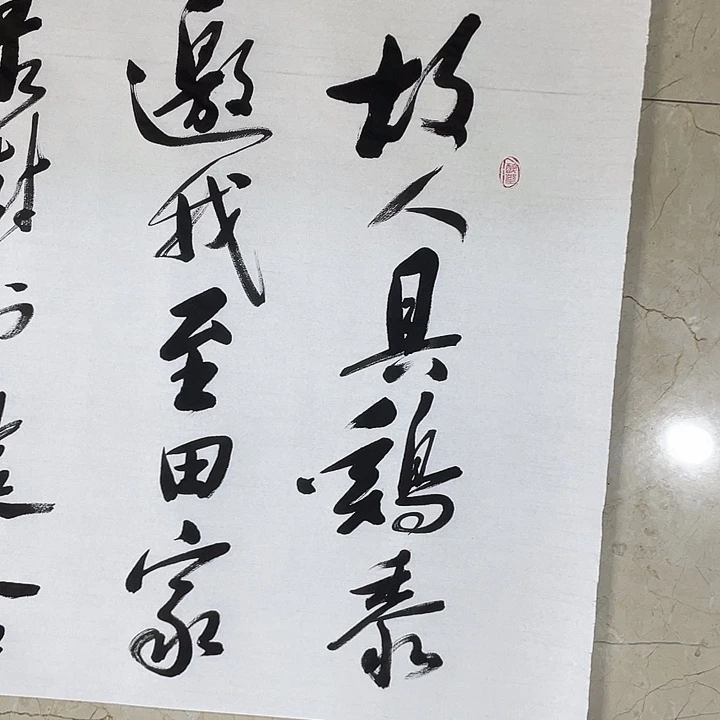 故人具鷄黍
邀我至田家